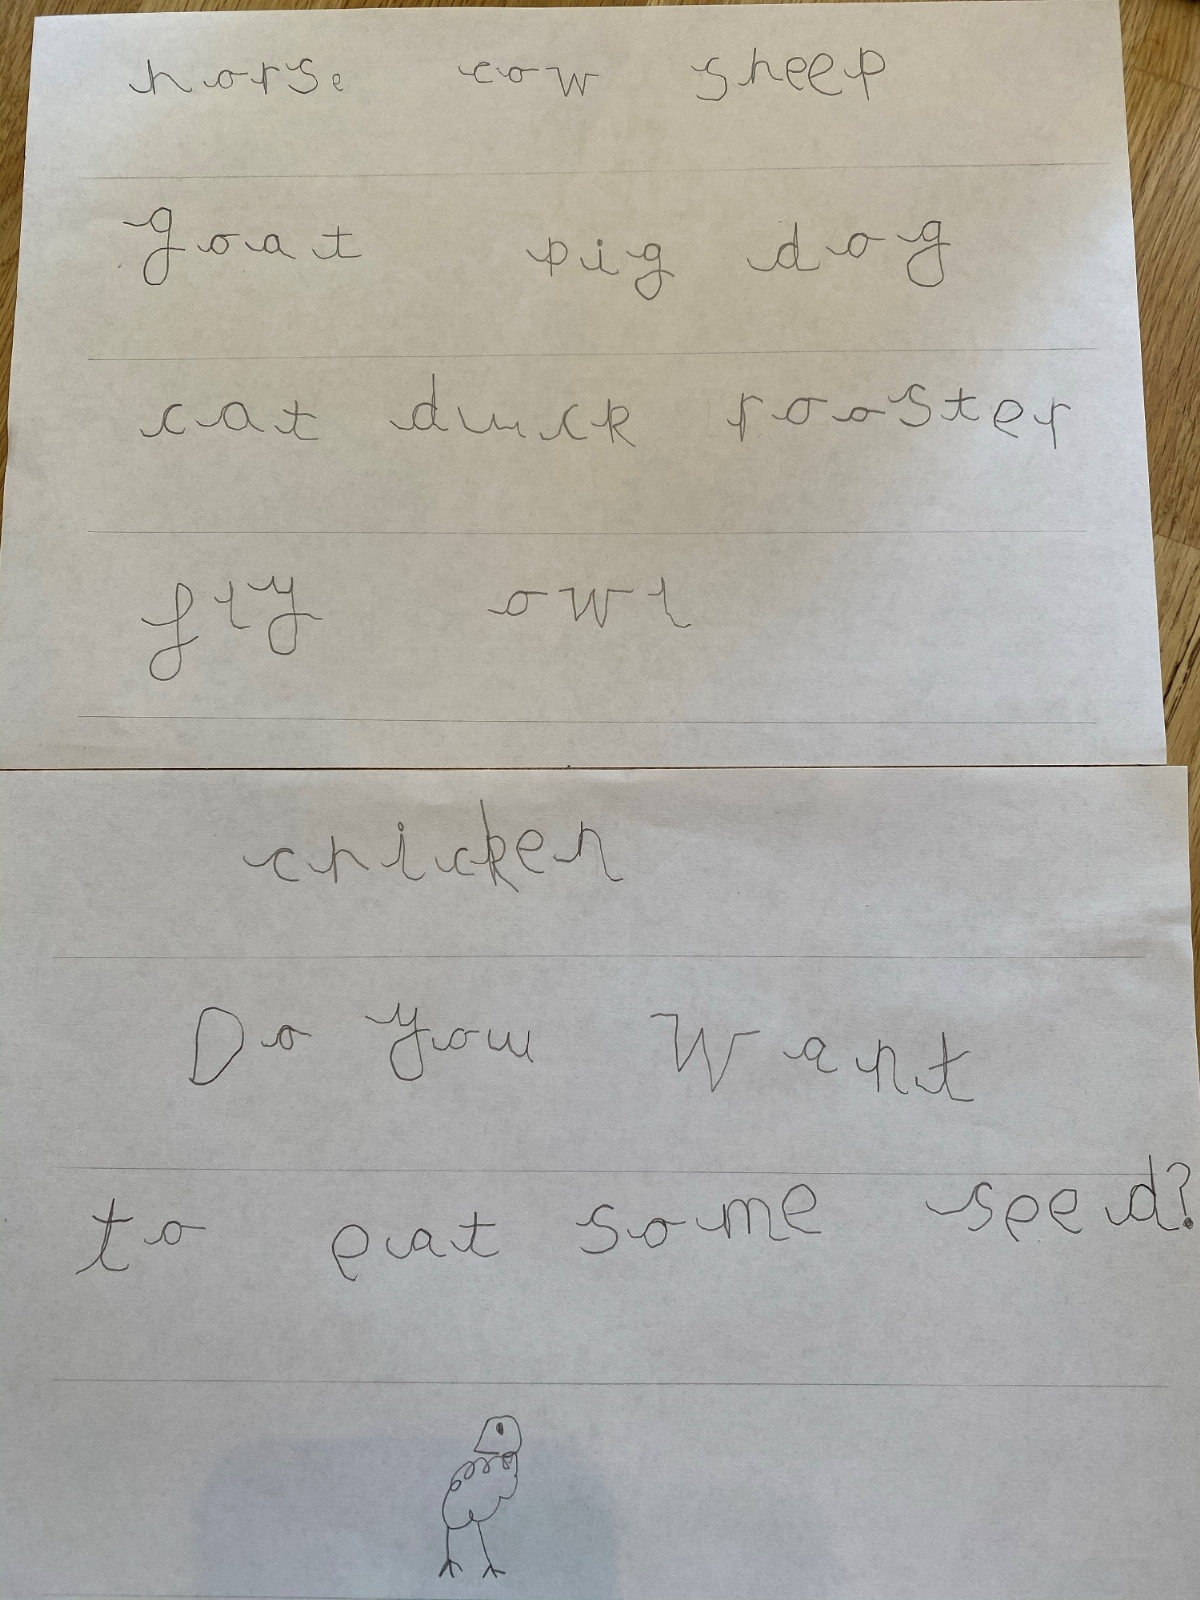 horse cow sheep
goat pig dog
cat duck rooster
fly owl
chicken
Do you want
to eat some seed?